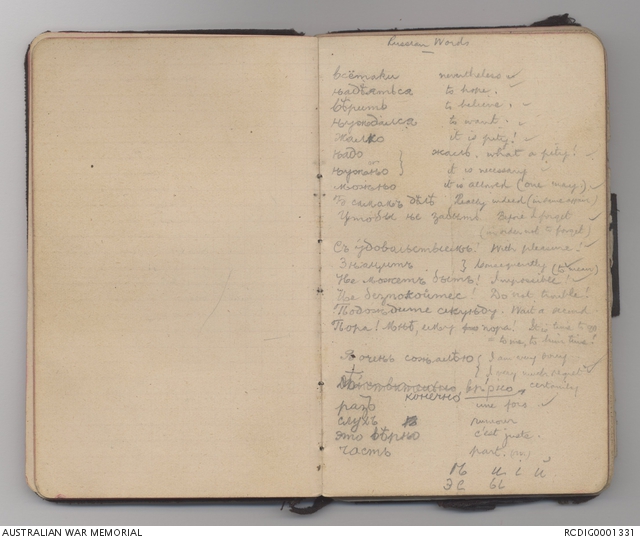 Russian Words
всётаки nevertheless ✓
надѣяться to hope. ✓
вѣрить to believe. ✓
нуждался to want. ✓
жалко it is pity! ✓
жаль. what a pity! ✓
надо
нужно } it is necessary ✓
можно it is allowed (one may) ✓
самомъ дѣлѣ Really indeed
Чтобы не забыть
(in order not to forget)
Съ удовольствіемъ! With pleasure! ✓
Значитъ } Consequently
Не можетъ быть! Impossible! ✓
Не безпокойтес! Do not trouble!
Подождите секунду. Wait a second
Пора! Мнѣ, ему пора! It is time to go
to me, to him time!
Я очень сожалѣю { I am very sorry
{ I very much regret ✓
Дѣйствительно вѣрно, certainly
конечно
разъ une fois ✓
слухъ rumour
это вѣрно c'est juste.
часть part.
и і й
ЭС Ы
AUSTRALIAN WAR MEMORIAL RCDIG0001331